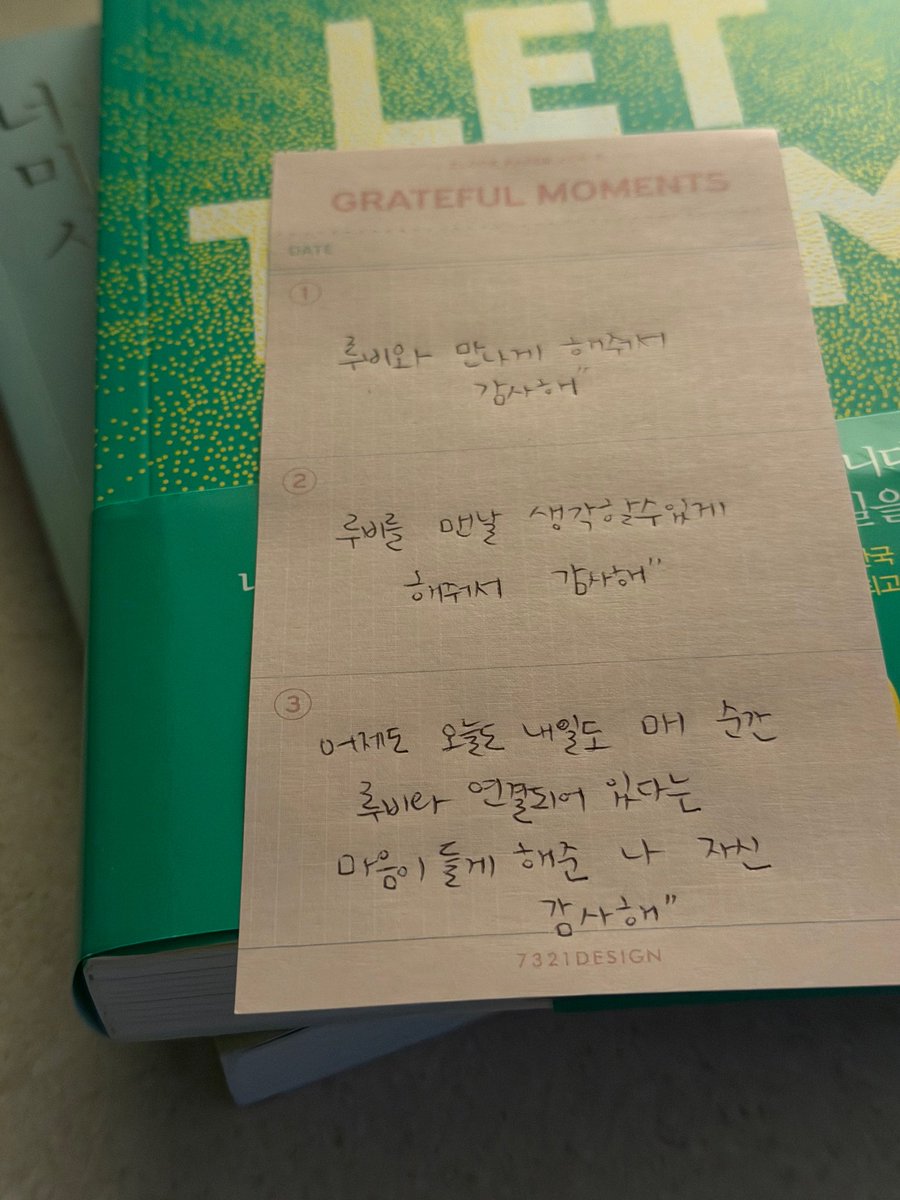 너
미
LET
GRATEFUL MOMENTS
DATE
1
루비와 만나게 해줘서
감사해"
2
루비를 맨날 생각할수있게
해줘서 감사해"
3
어제도 오늘도 내일도 매 순간
루비라 연결되어 있다는
마음이 들게 해준 나 자신
감사해"
7321DESIGN